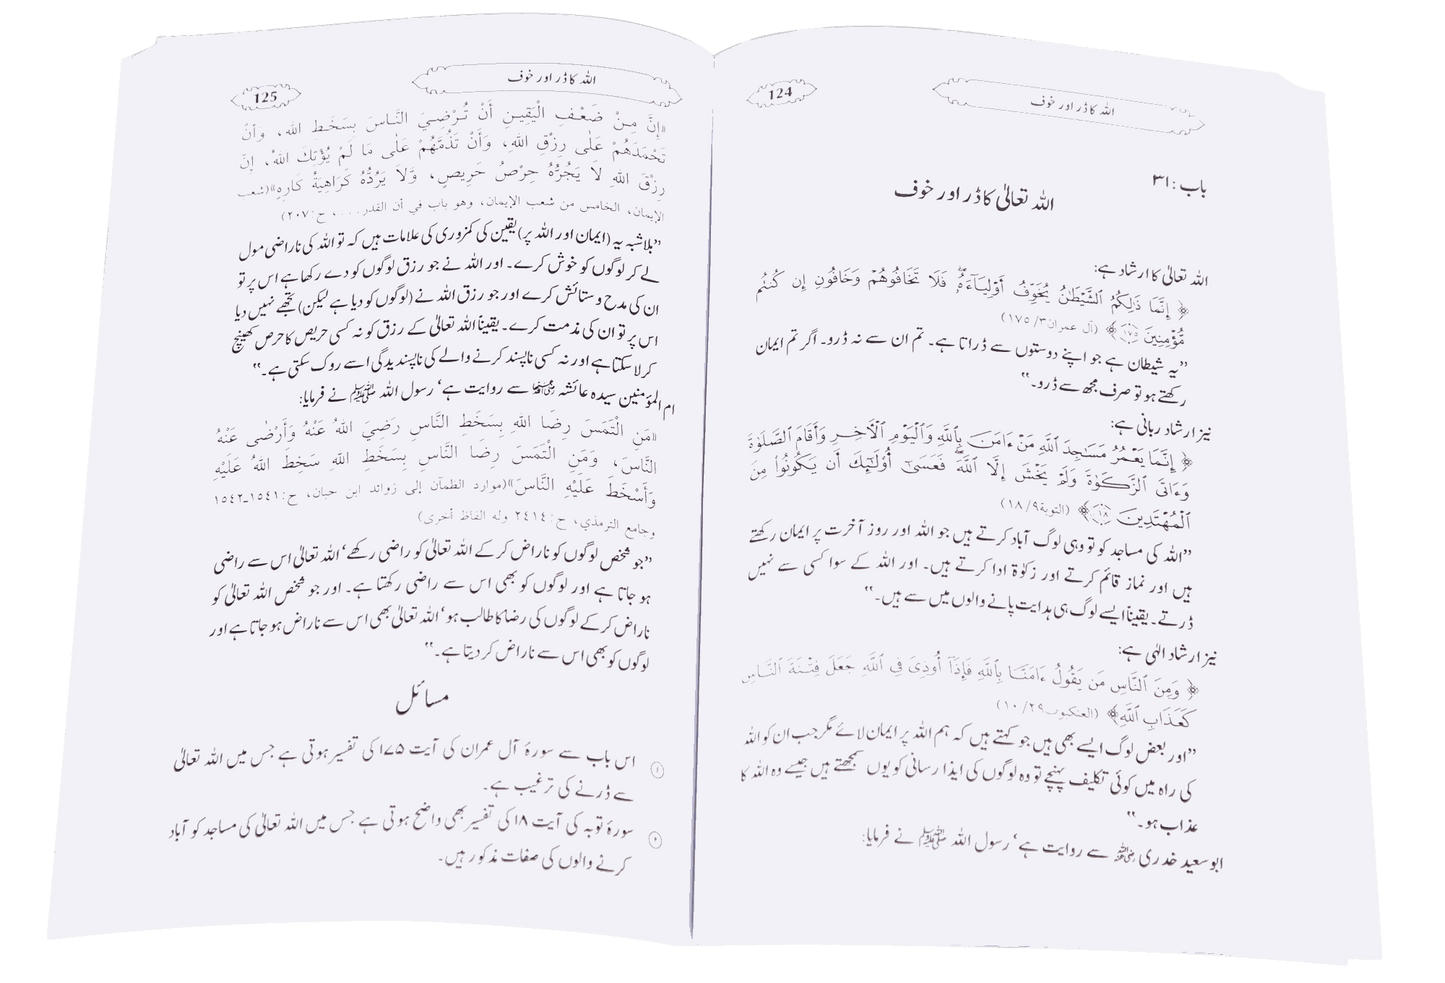 اللہ کا ڈر اور خوف
124
باب : ۳۱
اللہ تعالیٰ کا ڈر اور خوف
اللہ تعالیٰ کا ارشاد ہے:
﴿ إِنَّمَا ذَٰلِكُمُ ٱلشَّيْطَٰنُ يُخَوِّفُ أَوْلِيَآءَهُۥ فَلَا تَخَافُوهُمْ وَخَافُونِ إِن كُنتُم
مُّؤْمِنِينَ ١٧٥﴾ (آل عمران۳/ ۱۷۵)
”یہ شیطان ہے جو اپنے دوستوں سے ڈراتا ہے۔ تم ان سے نہ ڈرو۔ اگر تم ایمان
رکھتے ہو تو صرف مجھ سے ڈرو۔“
نیز ارشاد ربانی ہے:
﴿ إِنَّمَا يَعْمُرُ مَسَٰجِدَ ٱللَّهِ مَنْ ءَامَنَ بِٱللَّهِ وَٱلْيَوْمِ ٱلْءَاخِرِ وَأَقَامَ ٱلصَّلَوٰةَ
وَءَاتَى ٱلزَّكَوٰةَ وَلَمْ يَخْشَ إِلَّا ٱللَّهَ ۖ فَعَسَىٰٓ أُو۟لَٰٓئِكَ أَن يَكُونُوا۟ مِنَ
ٱلْمُهْتَدِينَ ١٨﴾ (التوبة۹/ ۱۸)
”اللہ کی مساجد کو تو وہی لوگ آباد کرتے ہیں جو اللہ اور روز آخرت پر ایمان رکھتے
ہیں اور نماز قائم کرتے اور زکوٰۃ ادا کرتے ہیں۔ اور اللہ کے سوا کسی سے نہیں
ڈرتے۔ یقیناً ایسے لوگ ہی ہدایت پانے والوں میں سے ہیں۔“
نیز ارشاد الٰہی ہے:
﴿ وَمِنَ ٱلنَّاسِ مَن يَقُولُ ءَامَنَّا بِٱللَّهِ فَإِذَآ أُوذِىَ فِى ٱللَّهِ جَعَلَ فِتْنَةَ ٱلنَّاسِ
كَعَذَابِ ٱللَّهِ﴾ (العنكبوت۲۹/ ۱۰)
”اور بعض لوگ ایسے بھی ہیں جو کہتے ہیں کہ ہم اللہ پر ایمان لائے مگر جب ان کو اللہ
کی راہ میں کوئی تکلیف پہنچے تو وہ لوگوں کی ایذا رسانی کو یوں سمجھتے ہیں جیسے وہ اللہ کا
عذاب ہو۔“
ابو سعید خدری رضی اللہ عنہ سے روایت ہے‘ رسول اللہ ﷺ نے فرمایا:
اللہ کا ڈر اور خوف
125
«إِنَّ مِنْ ضَعْفِ الْيَقِينِ أَنْ تُرْضِيَ النَّاسَ بِسَخَطِ اللهِ، وأنْ
تَحْمَدَهُمْ عَلَى رِزْقِ اللهِ، وَأَنْ تَذُمَّهُمْ عَلَى مَا لَمْ يُؤْتِكَ اللهُ، إنَّ
رِزْقَ اللهِ لَا يَجُرُّهُ حِرْصُ حَرِيصٍ، وَلَا يَرُدُّهُ كَرَاهِيَةُ كَارِهٍ»(شعب
الإيمان، الخامس من شعب الإيمان، وهو باب في أن القدر....، ح:۲۰۷)
”بلاشبہ یہ (ایمان اور اللہ پر) یقین کی کمزوری کی علامات ہیں کہ تو اللہ کی ناراضی مول
لے کر لوگوں کو خوش کرے۔ اور اللہ نے جو رزق لوگوں کو دے رکھا ہے اس پر تو
ان کی مدح و ستائش کرے اور جو رزق اللہ نے (لوگوں کو دیا ہے لیکن) تجھے نہیں دیا
اس پر تو ان کی مذمت کرے۔ یقیناً اللہ تعالیٰ کے رزق کو نہ کسی حریص کا حرص کھینچ
کر لا سکتا ہے اور نہ کسی ناپسند کرنے والے کی ناپسندیدگی اسے روک سکتی ہے۔“
ام المؤمنین سیدہ عائشہ رضی اللہ عنہا سے روایت ہے‘ رسول اللہ ﷺ نے فرمایا:
«مَنِ الْتَمَسَ رِضَا اللهِ بِسَخَطِ النَّاسِ رَضِيَ اللهُ عَنْهُ وَأَرْضَى عَنْهُ
النَّاسَ، وَمَنِ الْتَمَسَ رِضَا النَّاسِ بِسَخَطِ اللهِ سَخِطَ اللهُ عَلَيْهِ
وَأَسْخَطَ عَلَيْهِ النَّاسَ»(موارد الظمآن إلى زوائد ابن حبان، ح:١٥٤١-١٥٤٢
وجامع الترمذي، ح: ٢٤١٤ وله الفاظ أخرى)
”جو شخص لوگوں کو ناراض کر کے اللہ تعالیٰ کو راضی رکھے‘ اللہ تعالیٰ اس سے راضی
ہو جاتا ہے اور لوگوں کو بھی اس سے راضی رکھتا ہے۔ اور جو شخص اللہ تعالیٰ کو
ناراض کر کے لوگوں کی رضا کا طالب ہو‘ اللہ تعالیٰ بھی اس سے ناراض ہو جاتا ہے اور
لوگوں کو بھی اس سے ناراض کر دیتا ہے۔“
مسائل
۱ اس باب سے سورۂ آل عمران کی آیت ۱۷۵ کی تفسیر ہوتی ہے جس میں اللہ تعالیٰ
سے ڈرنے کی ترغیب ہے۔
۲ سورۂ توبہ کی آیت ۱۸ کی تفسیر بھی واضح ہوتی ہے جس میں اللہ تعالیٰ کی مساجد کو آباد
کرنے والوں کی صفات مذکور ہیں۔